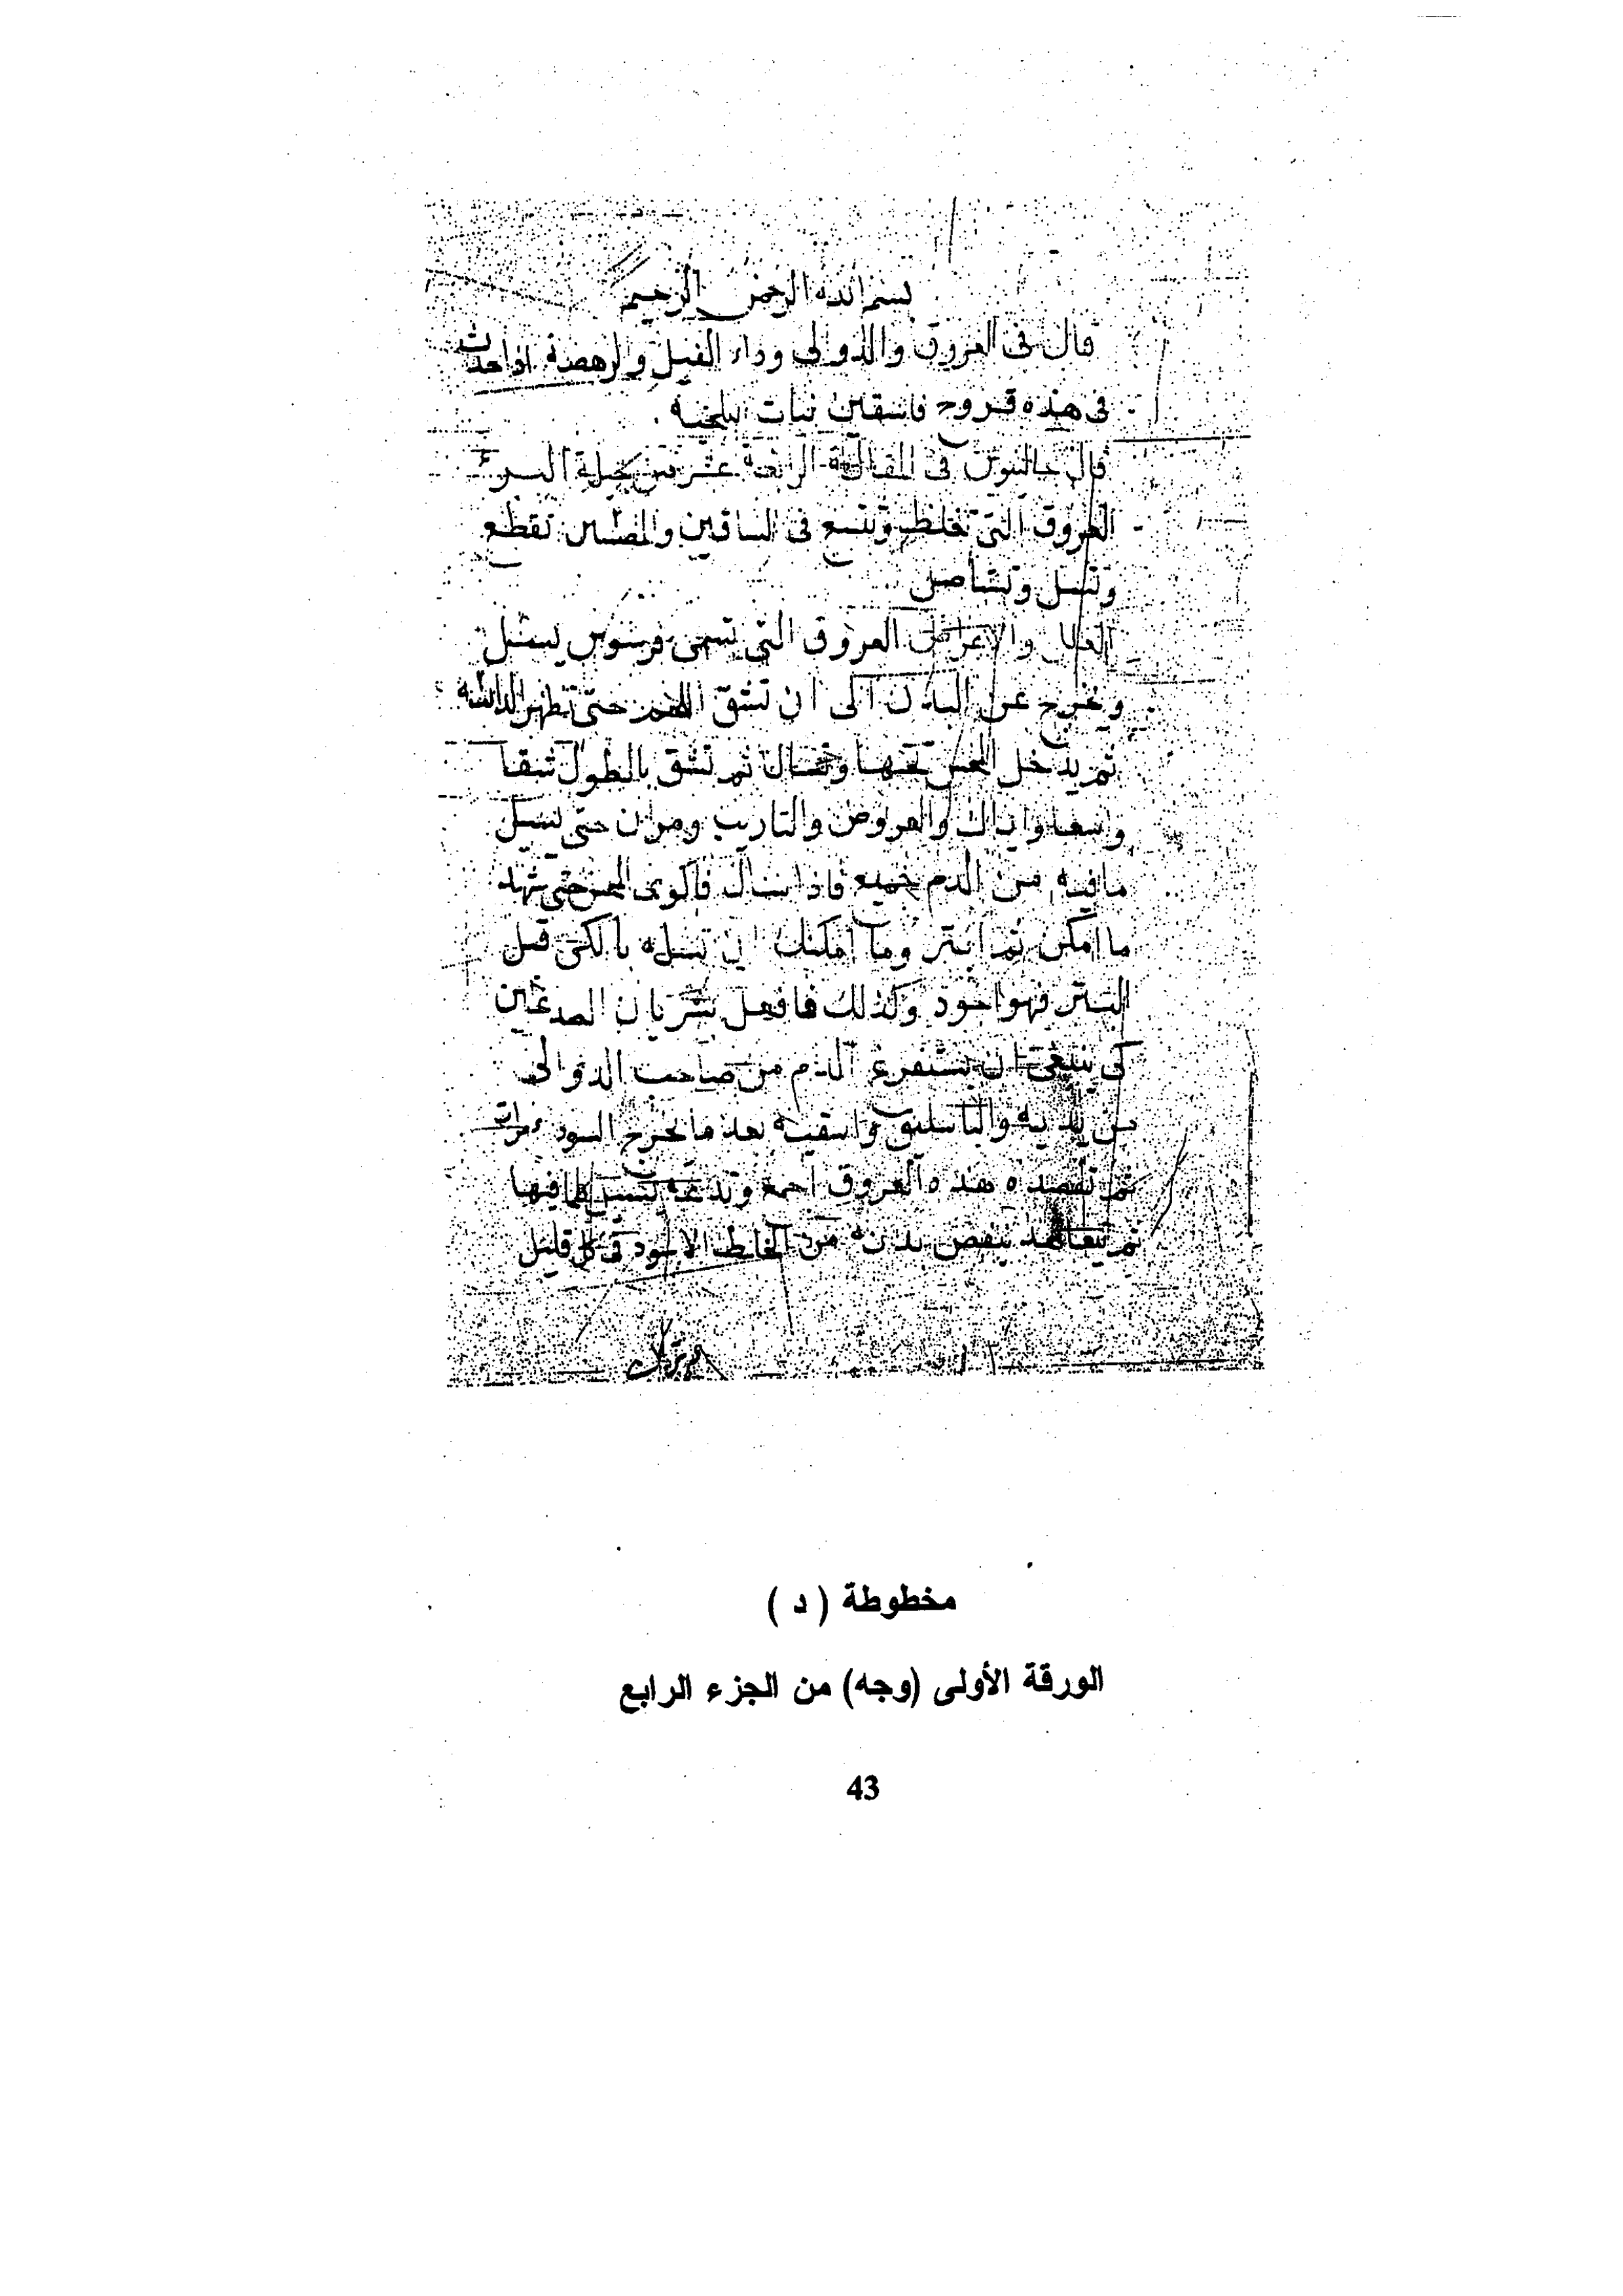 بسم الله الرحمن الرحيم
قال فى العروق والدوالى وداء الفيل والرهصة اذا حدث
فى هذه قروح فاسقين نبات اللحية
قال جالينوس فى المقالة الرابعة عشر من حيلة البرء
العروق التى تغلظ وتتسع فى الساقين تقطع
وتسل وتستأصل
العلل والاعراض العروق التى تسمى قرسوس يستل
ويخرج عن البدن الى ان تشق اللحم حتى تظهر
ثم يدخل المجس تحتها وتشال ثم تشق بالطول شقا
واسعا واياك والعروض والتاريب حتى يسيل
ما فيه من الدم جميع فاذا سال المجس حتى
ما امكن ثم ابتر وما امكنك ان تسله بالكى قبل
البتر فهو اجود وكذلك فافعل بشريان الصدغين
كى ينبغى ان يستفرغ الدم من صاحب الدوالى
من يديه والباسليق واسقيه بعد ما يخرج السوداء مرات
ثم تفصد هذه العروق اجمع وتدعه يسيل كلما فيها
ثم تتعاهد بنفض بدنه من الغليظ الاسود فى كل قليل
مخطوطة ( د )
الورقة الأولى (وجه) من الجزء الرابع
43